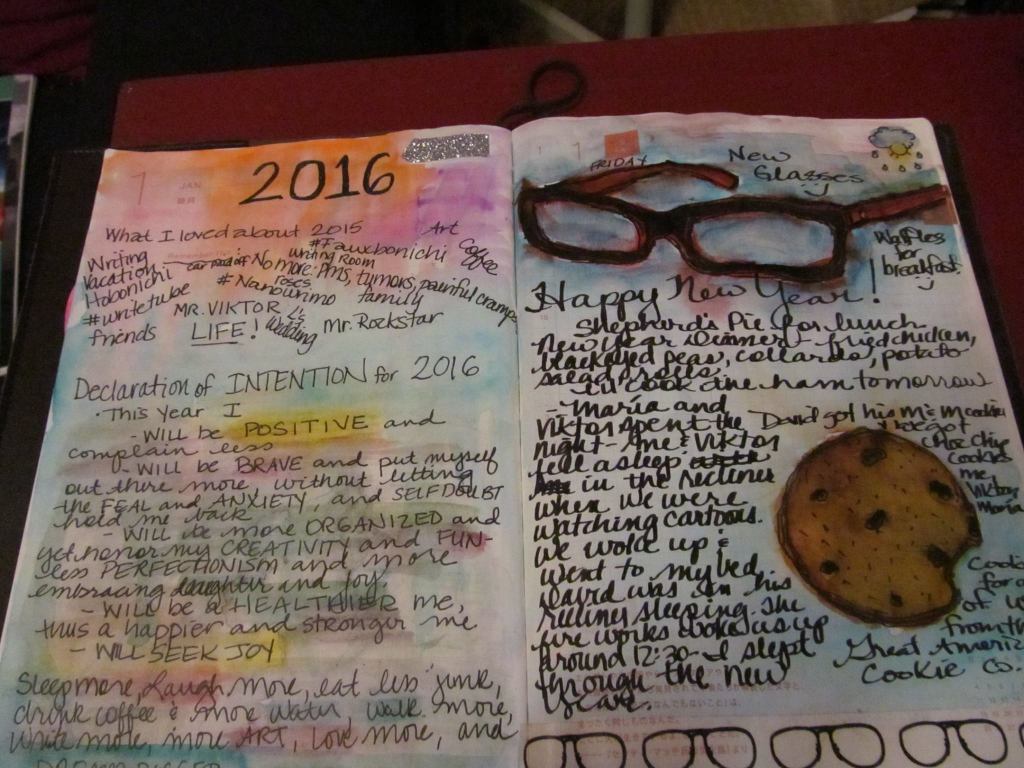 1
JAN
2016
What I loved about 2015
Writing
Vacation
Hobonichi
#writetube
friends
#Fawkbonichi
Writing Room
No more: PMS, tumors, painful cramps
Art
Coffee
#Nanowrimo
roses
family
MR. VIKTOR
LIFE!
Wedding
Mr. Rockstar
Declaration of INTENTION for 2016
• This Year I
- WILL be POSITIVE and
complain less
- WILL be BRAVE and put myself
out there more without letting
the FEAL and ANXIETY, and SELFDOUBT
hold me back
- WILL be more ORGANIZED and
yet honor my CREATIVITY and FUN-
less PERFECTIONISM and more
embracing laughter and joy.
- WILL be a HEALTHIER me,
thus a happier and stronger me
- WILL SEEK JOY
Sleep more, Laugh more, eat less junk,
drink coffee & more water, walk more,
write more, more ART, Love more, and
DREAM BIGGER
1 1
FRIDAY
New
Glasses
Waffles
for
breakfast
Happy New Year!
Shepherd's Pie for lunch
New year Dinner - fried chicken,
blackeyed peas, collards, potato
salad & rolls
I'll cook the ham tomorrow
- Maria and
Viktor spent the
night - Me & Viktor
fell asleep
in the recliner
when we were
watching cartoons.
We woke up &
went to my bed.
David was in his
recliner sleeping. The
fire works woke us up
around 12:30 - I slept
through the new
year.
David got his m&m cookie
& we got
Choc Chip
Cookies
me
Viktor
Maria
Cooki
for a
of u
from th
Great Americ
Cookie Co.